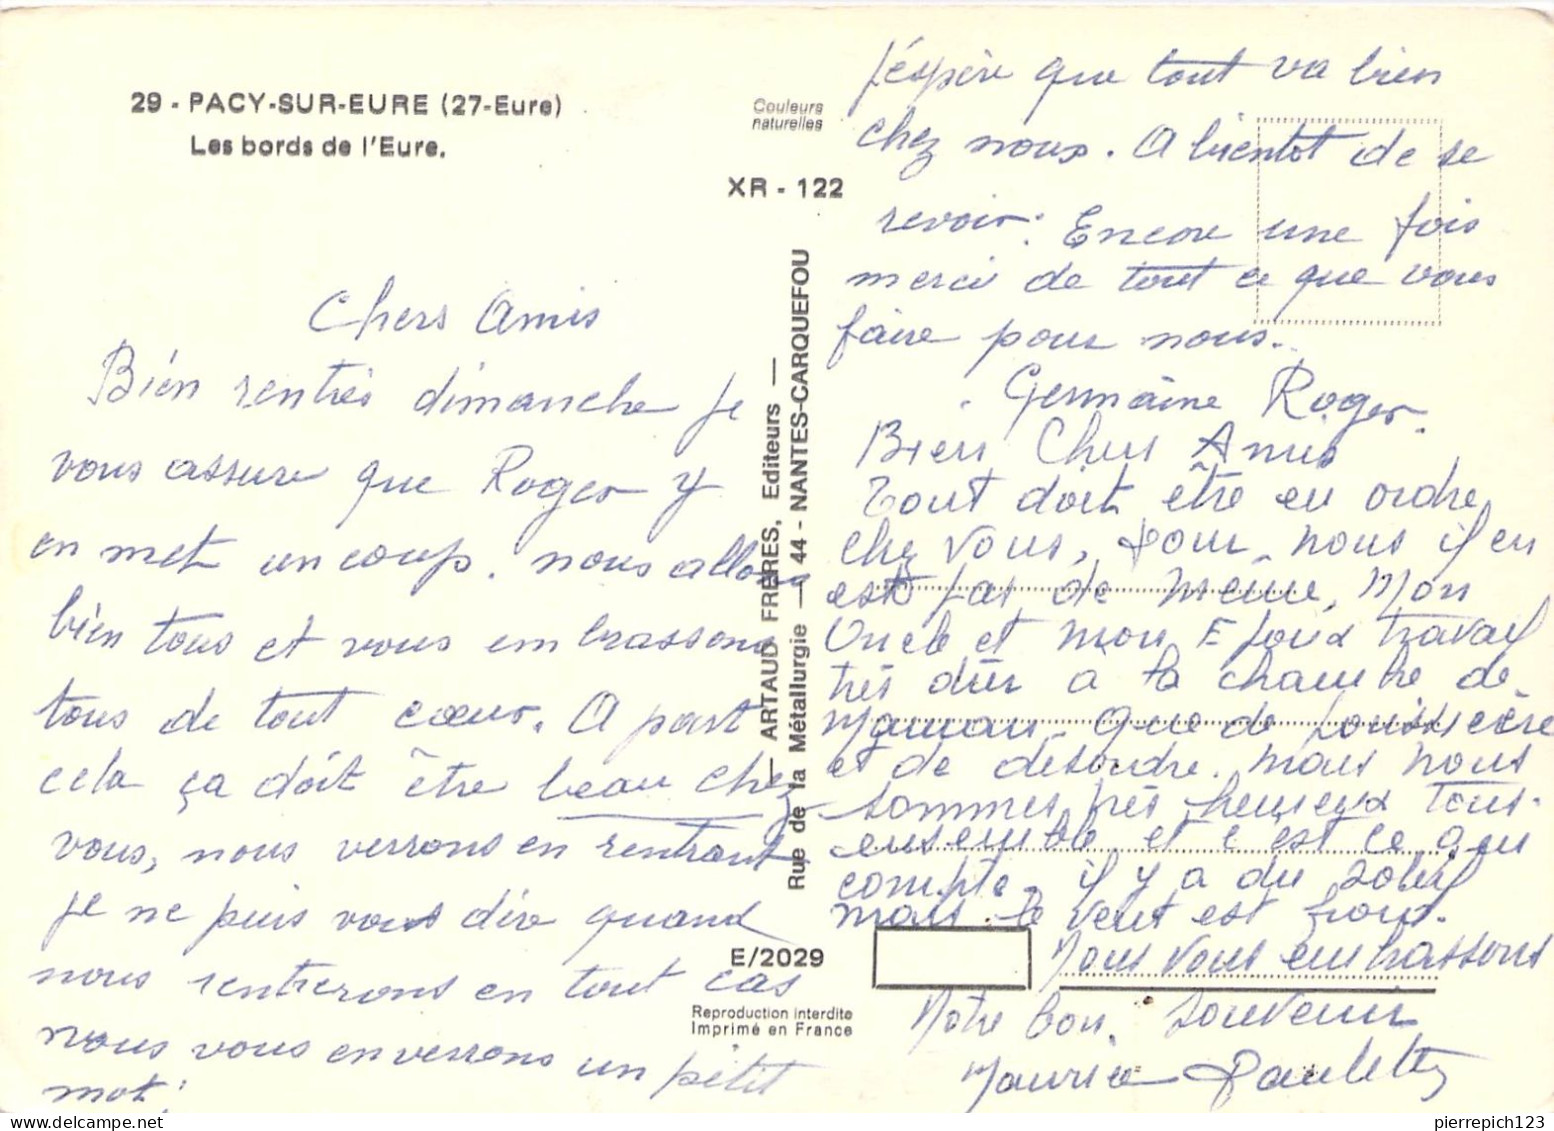 29 - PACY-SUR-EURE (27-Eure)
Les bords de l'Eure.
Couleurs
naturelles
XR - 122
Chers Amis
Bien rentrés dimanche je
vous assure que Roger y
en met un coup. nous allons
bien tous et vous embrassons
tous de tout cœur. A part
cela ça doit être beau chez
vous, nous verrons en rentrant
je ne puis vous dire quand
nous rentrerons en tout cas
nous vous enverrons un petit
mot.
— ARTAUD FRÈRES, Editeurs —
Rue de la Métallurgie — 44 - NANTES-CARQUEFOU
E/2029
Reproduction interdite
Imprimé en France
j'éspère que tout va bien
chez nous. A bientot de se
revoir. Encore une fois
merci de tout ce que vous
faire pour nous.
Germaine Roger.
Bien Chers Amis
Tout doit être en ordre
chez vous, pour nous il en
est pas de même, Mon
Oncle et mon Epoux travail
très dur à la chambre de
Maman. que de poussière
et de désordre. mais nous
sommes très heureux tous
ensemble et c'est ce qui
compte, il y a du soleil
mais le vent est froid.
Nous vous embrassons
Notre bon souvenir
Maurice Paulette
pierrepich123